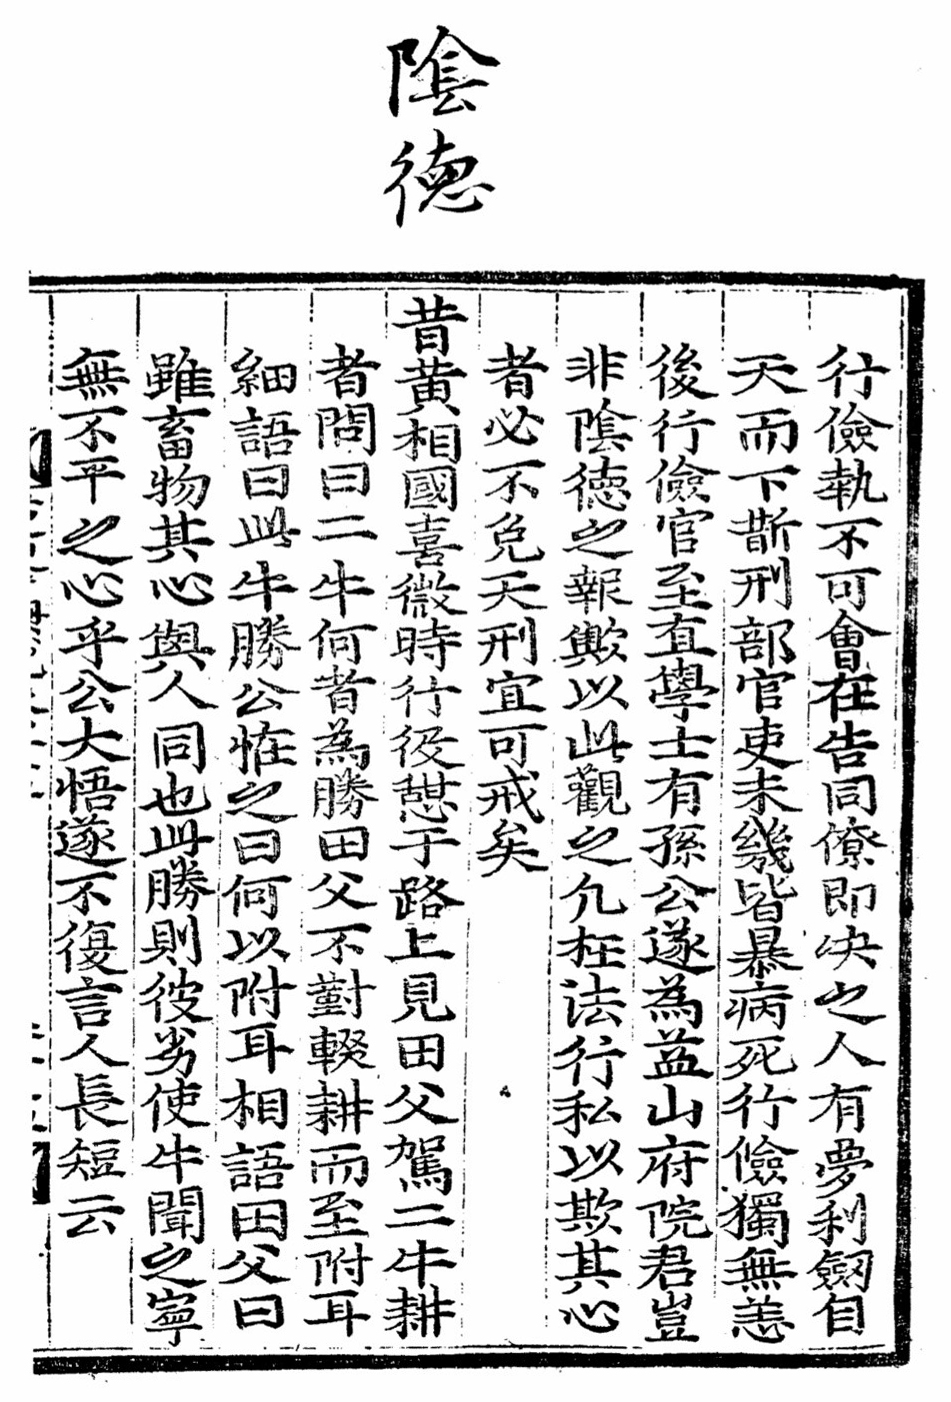 陰德
行儉執不可會在告同僚即决之人有夢利劒自
天而下斷刑部官吏未幾皆暴病死行儉獨無恙
後行儉官至直學士有孫公遂為益山府院君豈
非陰德之報歟以此觀之凢枉法行私以欺其心
者必不免天刑宜可戒矣
昔黄相國喜微時行役憇于路上見田父駕二牛耕
者問曰二牛何者為勝田父不對輟耕而至附耳
細語曰此牛勝公恠之曰何以附耳相語田父曰
雖畜物其心與人同也此勝則彼劣使牛聞之寧
無不平之心乎公大悟遂不復言人長短云